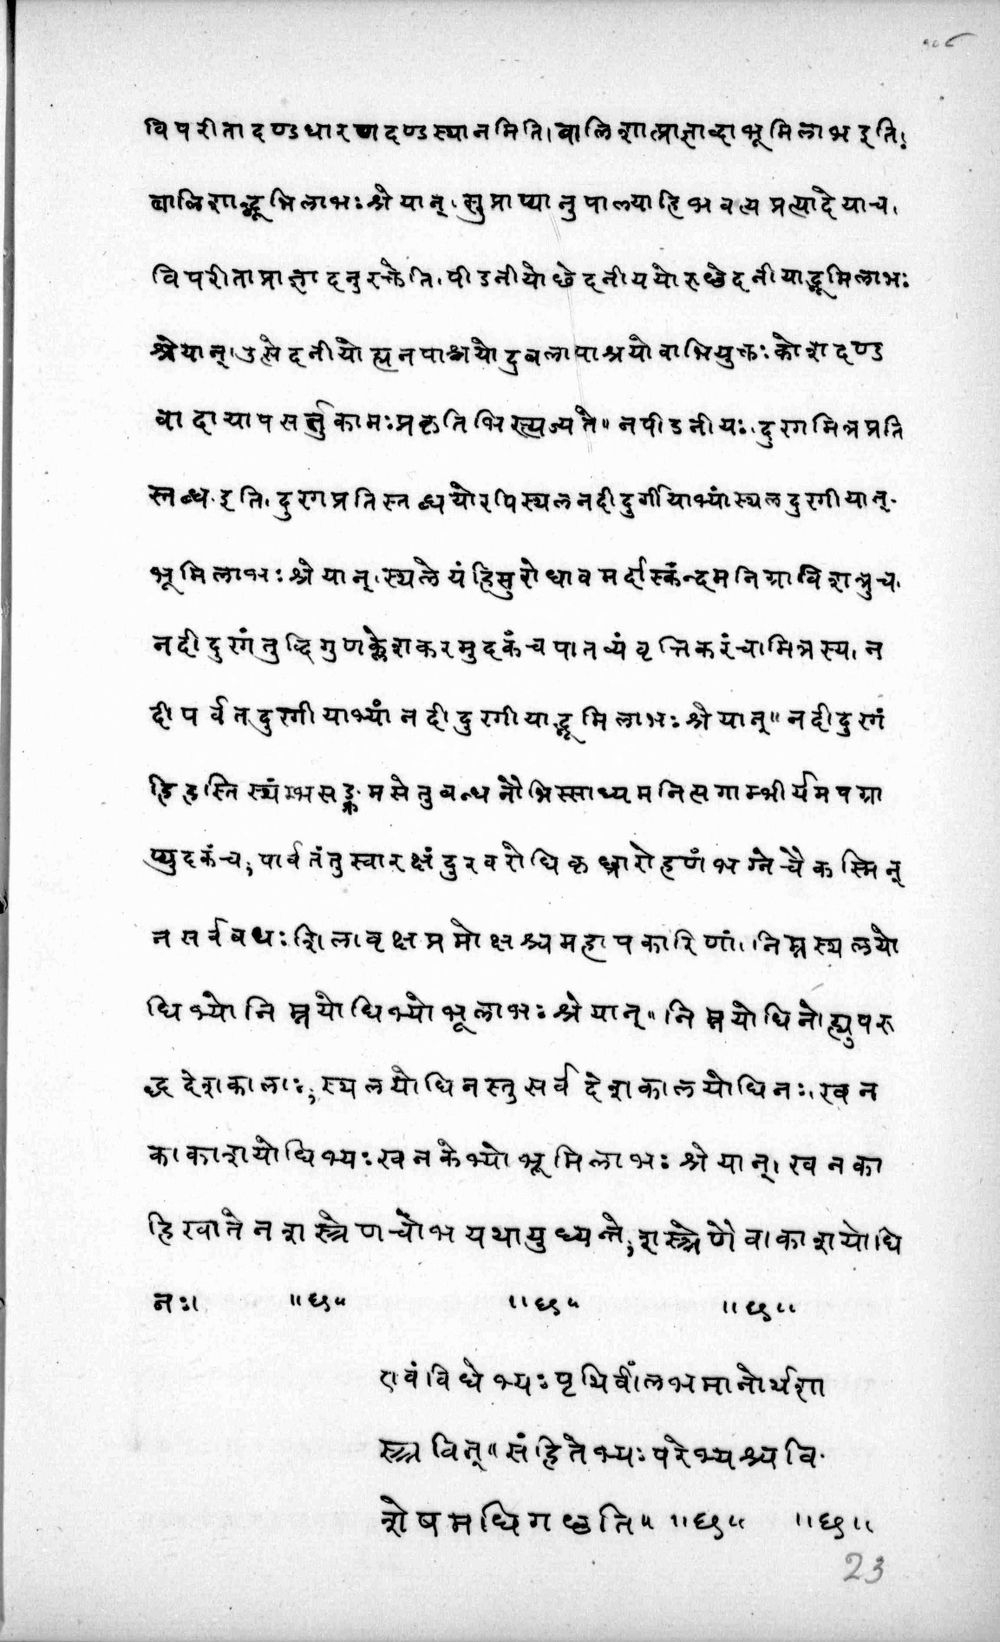 विपरीतादण्डधारणदण्डस्थानमिति। बालिशात्प्राज्ञाद्वाभूमिलाभइति।
बालिशाद्भूमिलाभःश्रेयान्। सुप्राप्यानुपालयाहिभवत्यप्रत्यादेयाच।
विपरीताप्राज्ञादनुरक्तेति। पीडनीयोछेदनीययोरुछेदनीयाद्भूमिलाभः
श्रेयान्। उछेदनीयोह्यनपाश्रयोदुबलापाश्रयोवाभियुक्तःकोशदण्ड
वादायापसर्त्तुकामःप्रकृतिभिस्त्यज्यते॥ नपीडनीयः। दुरगमित्रप्रति
स्तब्ध.इति। दुरगप्रतिस्तब्धयोरपिस्थलनदीदुर्गीयाभ्यांस्थलदुरगीयान्.
भूमिलाभःश्रेयान्। स्थलेयंहिसुरोधावमर्दास्कंन्दमनिग्राविशत्रुच.
नदीदुरगंतुद्विगुणक्लेशकरमुदकंचपातव्यंवृत्तिकरंचामित्रस्य। न
दीपर्वतदुरगीयाभ्यांनदीदुरगीयाद्भूमिलाभःश्रेयान्॥ नदीदुरगं
हिहस्तिस्थंम्भसङ्क्रमसेतुबन्धनौभिस्साध्यमनिसगाम्भीर्यमपग्रा
प्युदकंच, पार्वतंतुस्वारक्षंदुरवरोधिकृछ्रारोहणंभग्नेचैकस्मिन्
नसर्ववधःशिलावृक्षप्रमोक्षश्चमहापकारिणां। निम्नस्थलयो
धिभ्योनिम्नयोधिभ्योभूलाभःश्रेयान्॥ निम्नयोधिनोह्युपरु
द्धदेशकालाः, स्थलयोधिनस्तुसर्वदेशकालयोधिनः। खन
काकाशयोधिभ्यःखनकेभ्योभूमिलाभःश्रेयान्। खनका
हिखातेनशस्त्रेणचोभयथायुध्यन्ते, शस्त्रेणैवाकाशयोधि
नः। ॥छ॥ ॥छ॥ ॥छ॥
एवंविधेभ्यःपृथिवींलभमानोर्थशा
स्त्रवित्॥ संहितेभ्यःपरेभ्यश्चवि.
शेषमधिगछति॥ ॥छ॥ ॥छ॥
23